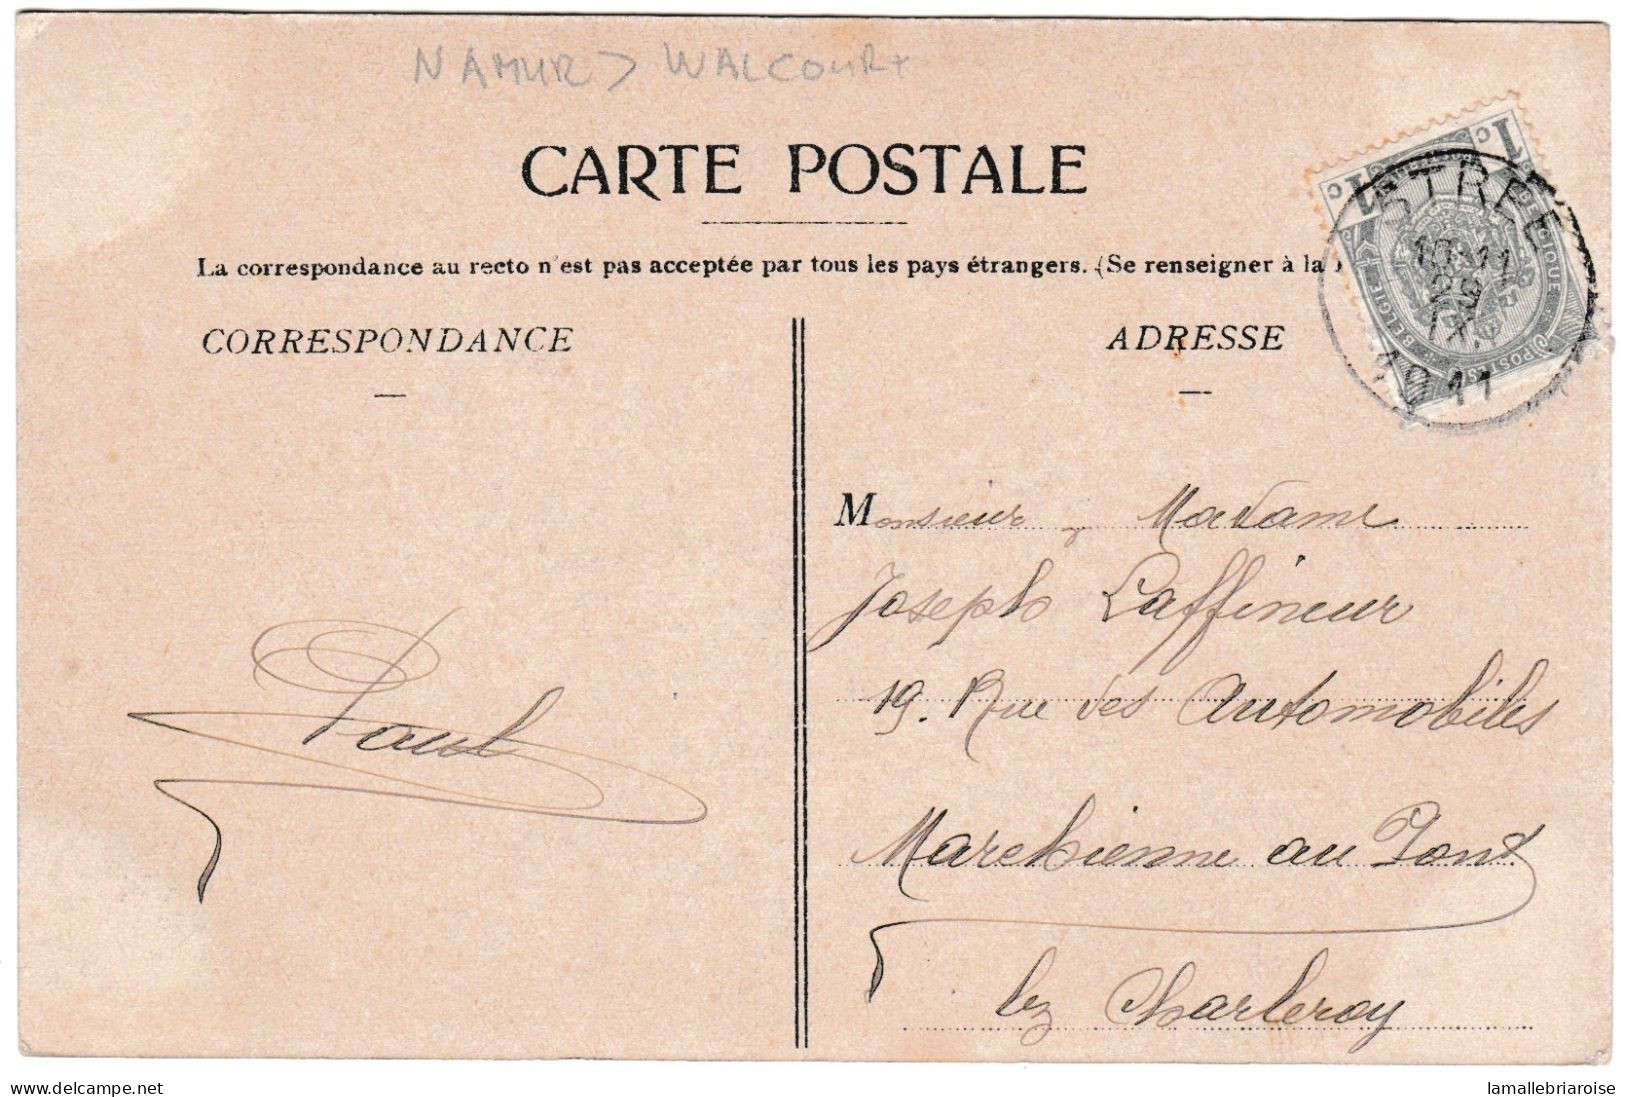 NAMUR > WALCOURT
CARTE POSTALE
La correspondance au recto n'est pas acceptée par tous les pays étrangers. (Se renseigner à la
CORRESPONDANCE
ADRESSE
1 c
c 1
BELGIE BELGIQUE
POSTES
STREE
10-11
23
IX.
1911
Monsieur y Madame
Joseph Laffineur
19. Rue des Automobiles
Marchienne au Pont
lez Charleroy
Paul
www.delcampe.net
lamallebriaroise